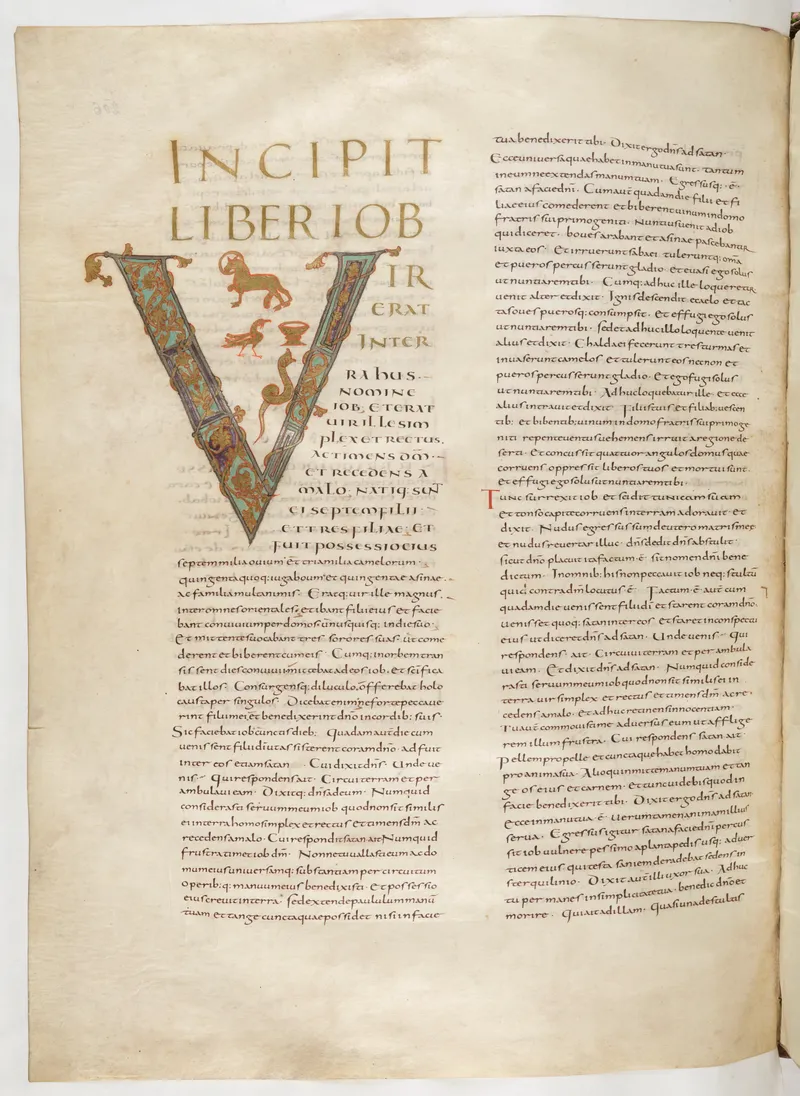 INCIPIT
LIBER IOB
VIR
ERAT
INTER
RA hUS·
NOMINE
IOB, ET ERAT
UIR ILLE SIM
PLEX ET RECTUS,
AC TIMENS DM̄·
ET RECEDENS A
MALO, NATIQ; SUNT
EI SEPTEM FILII·
ET TRES FILIAE; ET
FUIT POSSESSIO EIUS
septem milia ouium et tria milia camelorum·
quingenta quoq; iuga boum et quingentae asinae·
ac familia multa nimis· Eratq; uir ille magnus·
inter omnes orientales; et ibant filii eius et facie
bant conuiuium per domos unusquisq; in die suo·
Et mittentes uocabant tres sorores suas ut come
derent et biberent cum eis· Cumq; in orbem tran
sissent dies conuiuii mittebat ad eos iob, et sc̄ifica
bat illos· Consurgensq; diluculo, offerebat holo
causta per singulos· Dicebat enim ne forte peccaue
rint filii mei, et benedixerint dn̄o in cordib; suis·
Sic faciebat iob cunctis dieb; Quadam aut̄ die cum
uenissent filii dī ut assisterent coram dn̄o· adfuit
inter eos etiam satan· Cui dixit dn̄s· Unde ue
nis· Qui respondens ait· Circuiui terram et per
ambulaui eam· Dixitq; dn̄s ad eum· Numquid
considerasti seruum meum iob quod non sit similis
ei in terra homo simplex et rectus et timens dm̄ ac
recedens a malo· Cui respondit satan ait Numquid
frustra timet iob dm̄· Nonne tu uallasti eum ac do
mum eius uniuersamq; substantiam per circuitum
operib;q; manuum eius benedixisti· Et possessio
eius creuit in terra· sed extende paululum manū
tuam et tange cuncta quae possidet nisi in facie
tua benedixerit tibi· Dixit ergo dn̄s ad satan·
Ecce uniuersa quae habet in manu tua sunt· tantum
in eum ne extendas manum tuam· Egressusq; ē·
satan a facie dn̄i· Cum aut̄ quadam die filii et fi
liae eius comederent et biberent uinum in domo
fratris sui primogeniti· Nuntius uenit ad iob
qui diceret· boues arabant et asinae pascebantur
iuxta eos· Et irruerunt sabaei tuleruntq; om̄a
et pueros percusserunt gladio· et euasi ego solus
ut nuntiarem tibi· Cumq; adhuc ille loqueretur
uenit alter et dixit· Ignis dī descendit e caelo et tac
tas oues puerosq; consumpsit· et effugi ego solus
ut nuntiarem tibi· sed et adhuc illo loquente uenit
alius et dixit· Chaldaei fecerunt tres turmas et
inuaserunt camelos et tulerunt eos necnon et
pueros percusserunt gladio· et ego fugi solus
ut nuntiarem tibi· Adhuc loquebatur ille· et ecce
alius intrauit et dixit Filiis tuis et filiab; uescen
tib; et bibentib; uinum in domo fratris sui primoge
niti repente uentus uehemens irruit a regione de
serti· Et concussit quattuor angulos domus quae
corruens oppressit liberos tuos et mortui sunt·
et effugi ego solus ut nuntiarem tibi·
Tunc surrexit iob et scidit tunicam suam
et tonso capite corruens in terram adorauit et
dixit· Nudus egressus sum de utero matris meę
et nudus reuertar illuc dn̄s dedit dn̄s abstulit·
sicut dn̄o placuit ita factum ē· sit nomen dn̄i bene
dictum· In omnib; his non peccauit iob neq; stultū
quid contra dm̄ locutus ē· Factum ē aut̄ cum
quadam die uenissent filii dī et starent coram dn̄o·
uenisset quoq; satan inter eos et staret in conspectu
eius ut diceret dn̄s ad satan· Unde uenis· Qui
respondens ait· Circuiui terram et perambula
ui eam· Et dixit dn̄s ad satan· Numquid conside
rasti seruum meum iob quod non sit similis ei in
terra uir simplex et rectus et timens dm̄ ac re
cedens a malo· et adhuc retinens innocentiam·
Tu aut̄ commouisti me aduersus eum ut afflige
rem illum frustra· Cui respondens satan ait·
Pellem pro pelle et cuncta quae habet homo dabit
pro anima sua· Alioquin mitte manum tuam et tan
ge os eius et carnem· et tunc uidebis quod in
facie benedixerit tibi· Dixit ergo dn̄s ad satan
Ecce in manu tua ē· uerumtamen animam illius
serua· Egressus igitur satan a facie dn̄i percus
sit iob uulnere pessimo a planta pedis usq; ad uer
ticem eius qui testa saniem deradebat sedens in
sterquilinio· Dixit aut̄ illi uxor sua· Adhuc
tu permanes in simplicitate tua benedic dn̄o et
morire· Qui ait ad illam· quasi una de stultis